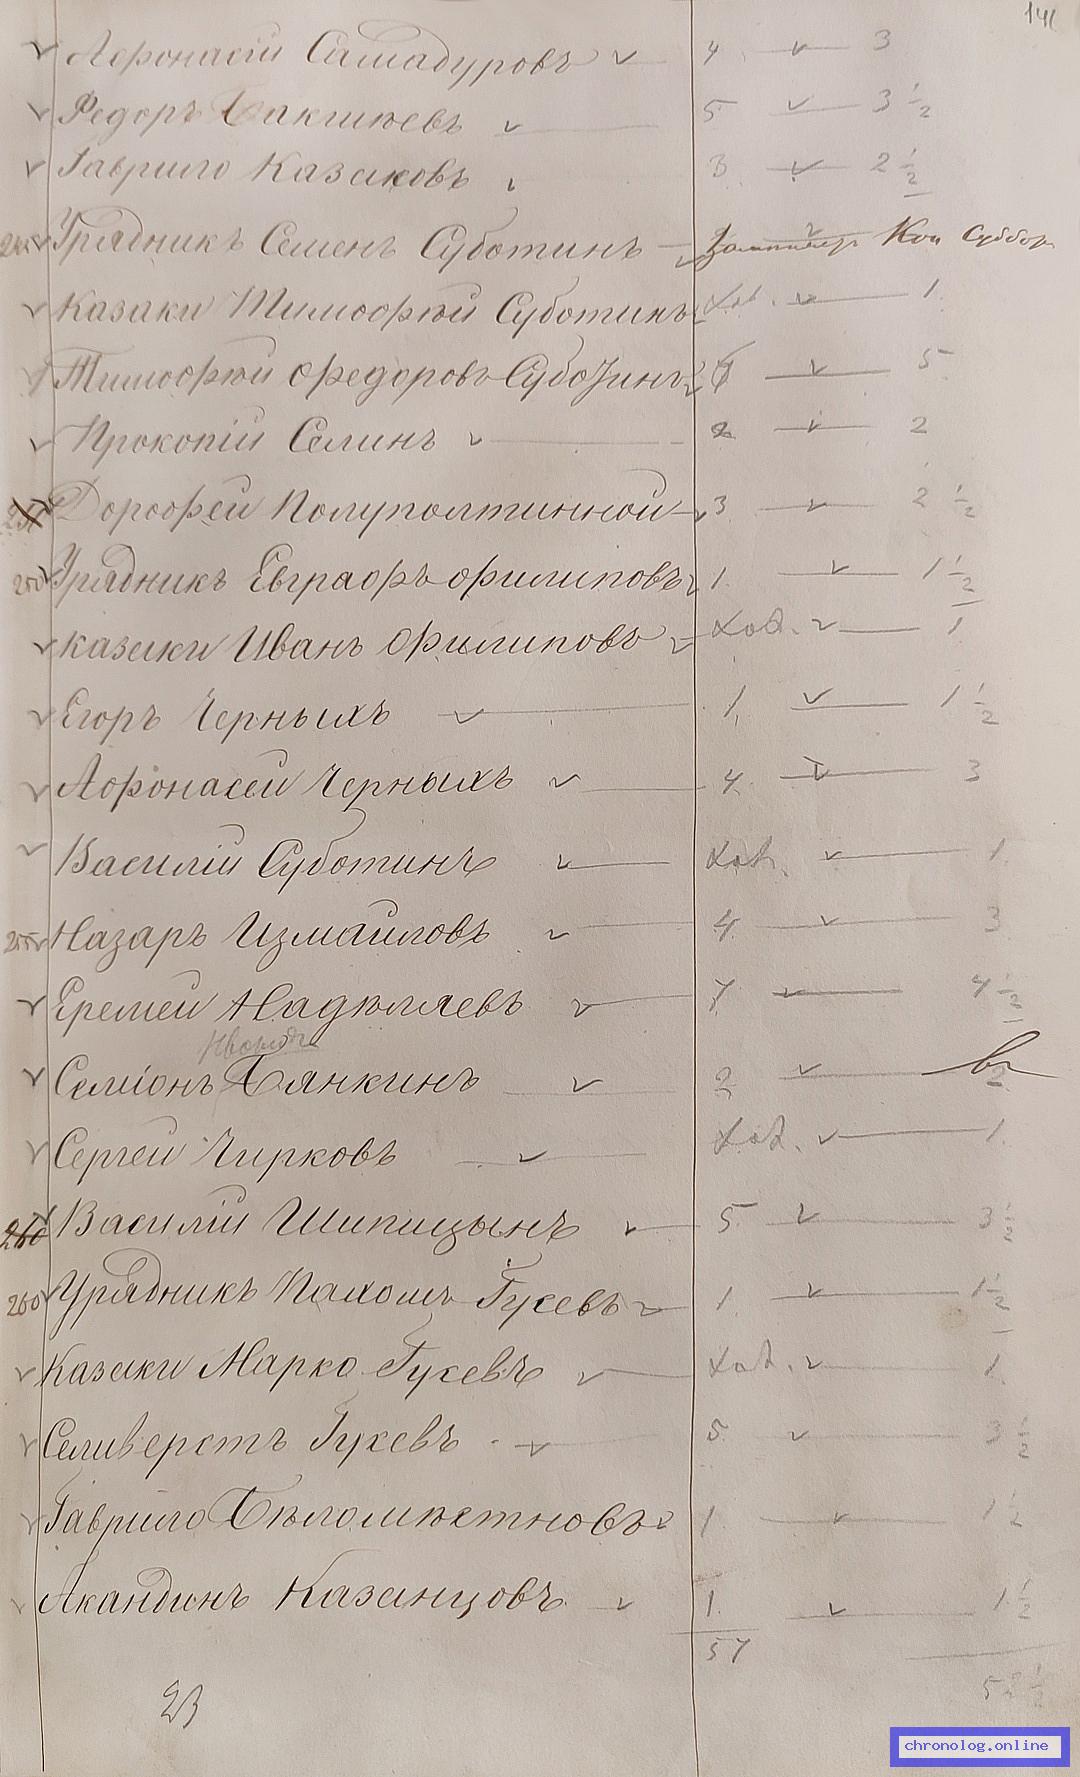 141
Афонасій Самадуровъ 4 3
Федоръ Бакшеевъ 5 3 1/2
Гаврило Казаковъ 3 2 1/2
Урядникъ Семенъ Суботинъ
Казаки Тимофѣй Суботинъ 1
Тимофѣй Федоровъ Суботинъ 5
Прокопій Селинъ 2 2
Дорофей Полуполтинной 3 2 1/2
250 Урядникъ Евграфъ Филиповъ 1 1 1/2
казаки Иванъ Филиповъ Хол. 1
Егоръ Черныхъ 1 1 1/2
Афонасей Черныхъ 4 3
Василій Суботинъ Хол. 1
255 Назаръ Измаиловъ 4 3
Еремеи Надѣляевъ 7 4 1/2
Семіонъ Бянкинъ 2
Сергеи Чирковъ Хол. 1
260 Василій Шипицынъ 5 3 1/2
260 Урядникъ Пахомъ Гусевъ 1 1 1/2
Казаки Марко Гусевъ Хол. 1
Селиверстъ Гусевъ 5 3 1/2
Гаврило Бѣломѣстновъ 1 1 1/2
Акандинъ Казанцовъ 1 1 1/2
57
52 1/2
23
chronolog.online